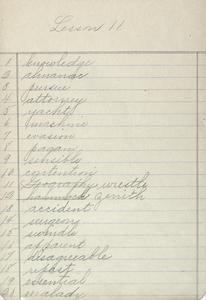 Lesson 11
1 knowledge
2 almanac
3 pursue
4 attorney
5 yacht
6 machine
7 evasion
8 pagan
9 sensible
10 contention
11 geography wrestle
12 hammock zenith
13 accident
14 surgeon
15
16 apparent
17 disagreeable
18 repast
19 essential
20 malady